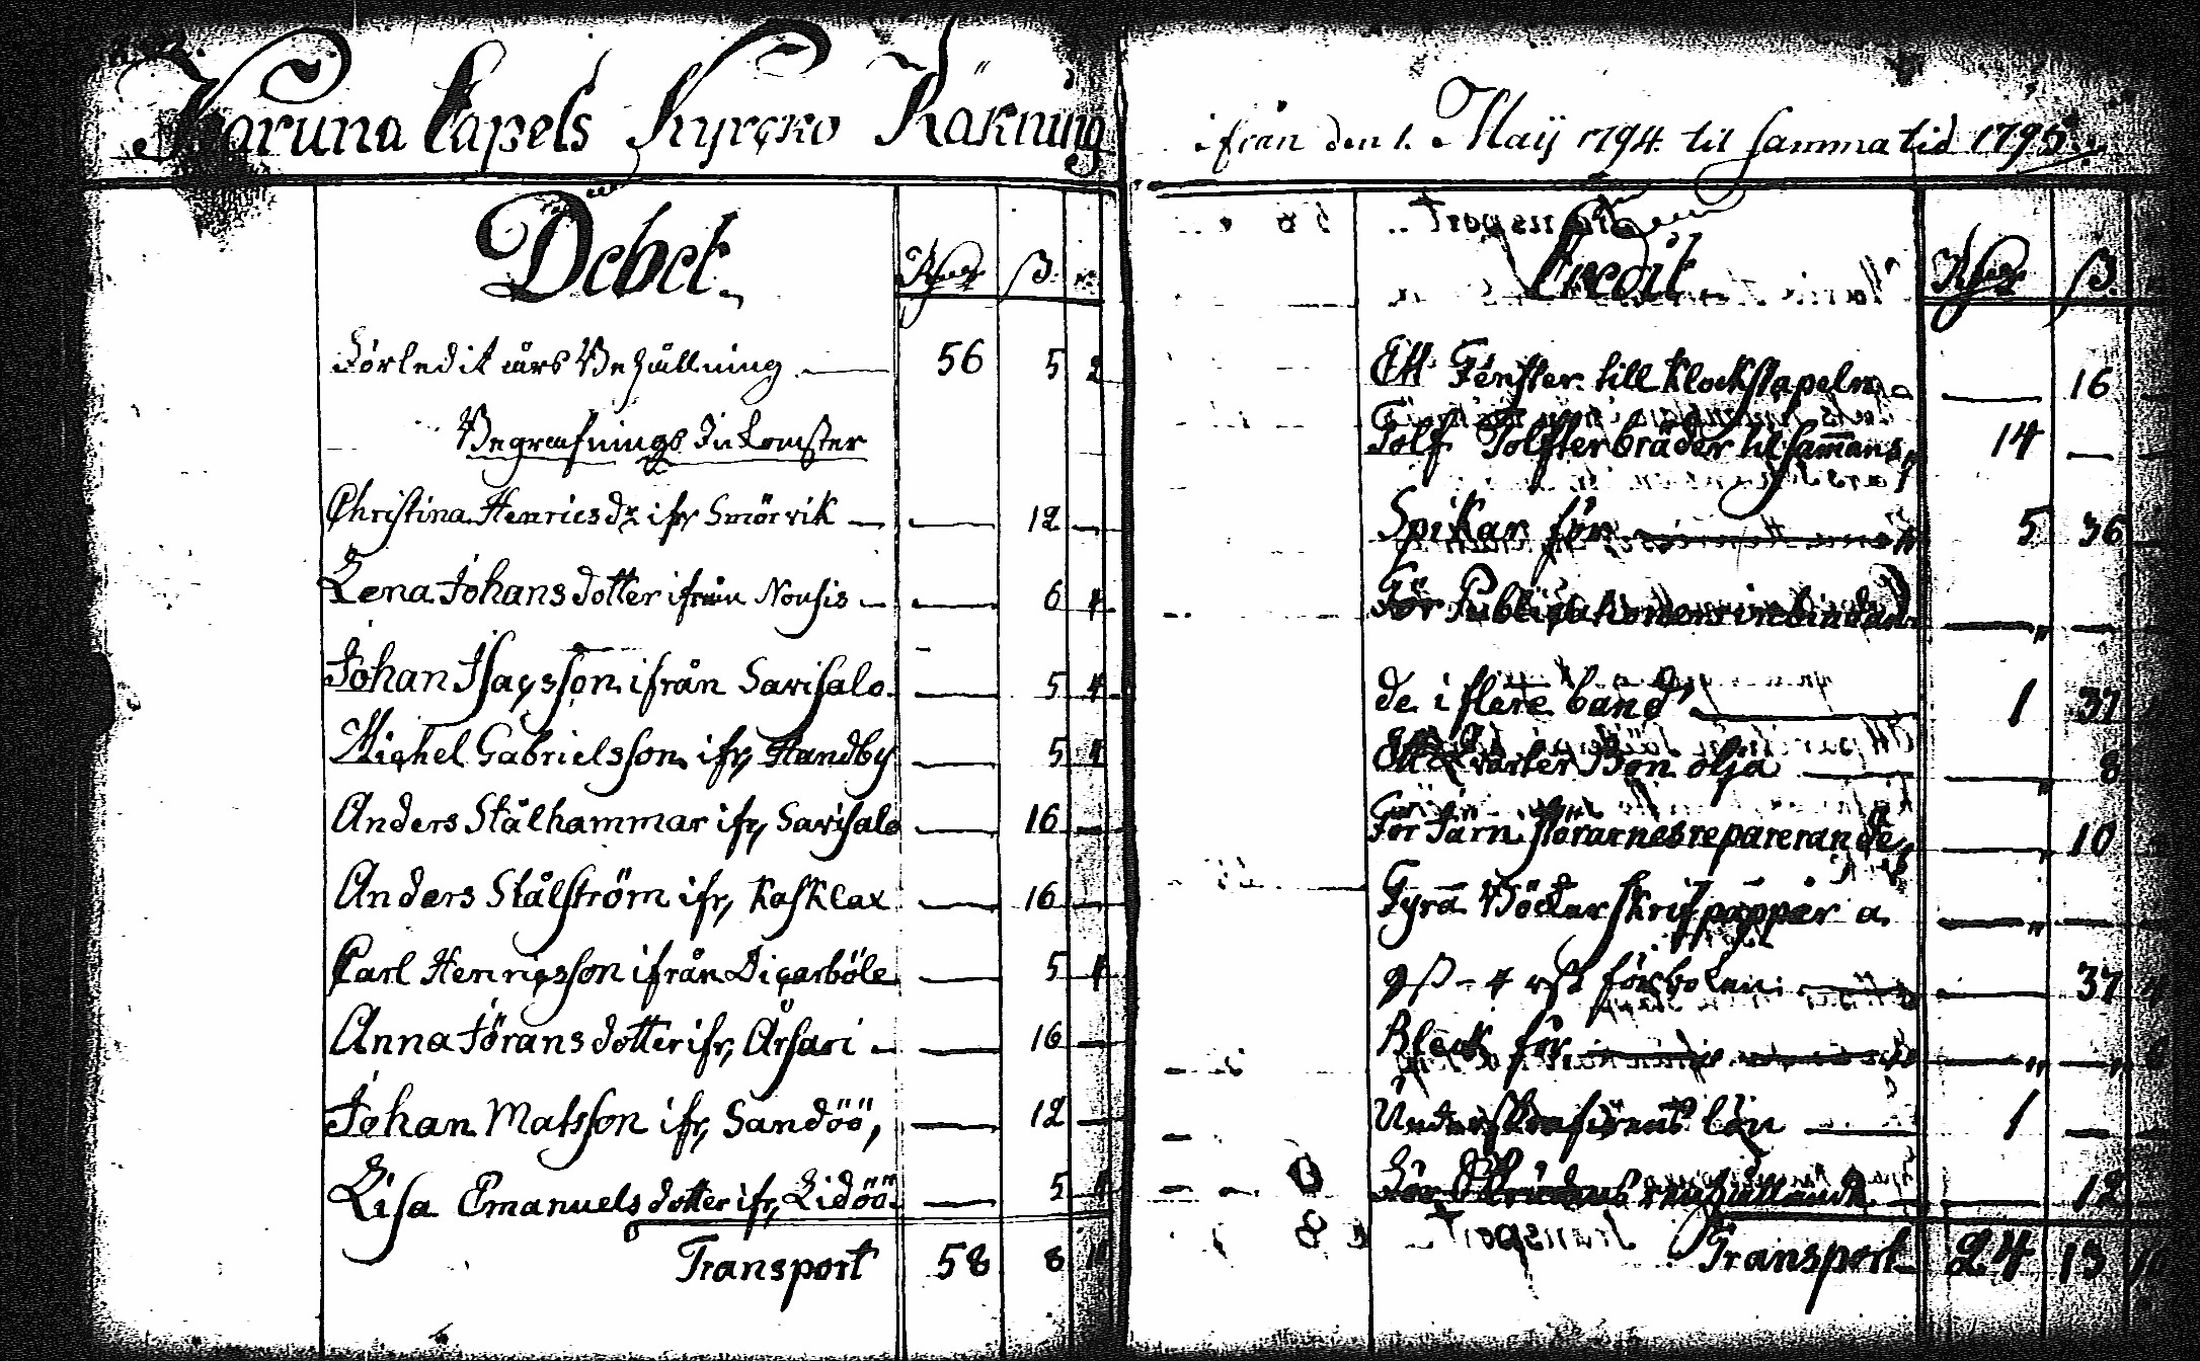 Karuna Capels Kyrcko Räkning
ifrån den 1. Maij 1794. til samma tid 1795.
Debet. Rdr ß. rs.
Förledit års Behållning 56 5 2
Begrafnings Inkomster
Christina Henricsdr ifr Smörvik — — 12 —
Lena Johans dotter ifrån Nousis — — 6 4
Johan Isacsson ifrån Sarisalo. — 5 4
Michel Gabrielsson ifr, Standby — 5 4
Anders Stålhammar ifr, Sarisalo — 16 —
Anders Stålström ifr, Kasklax — 16 —
Carl Henricsson ifrån Digarböle — 5 4
Anna Jöransdotter ifr, Årsari — — 16 —
Johan Matsson ifr, Sandöö, — 12 —
Lisa Emanuelsdotter ifr, Lidöö. — 5 4
Transport 58 8
Credit Rdr ß.
Ett Fenster till Klockstapeln — 16
Tolf Tolfter bräder tilsammans, 14 —
Spikar för — 5 36
För Publicationernes inbindan
de i flere band — 1 37
Ett qvarter Bom olja — 8
För Järn störarnes reparerande, — 10
Fyra Böcker skrifpapper a.
9 ß - 4 rst för boken. — 37 4
Bleck för — 6
lön — 1 —
För — 12
Transport 24 13